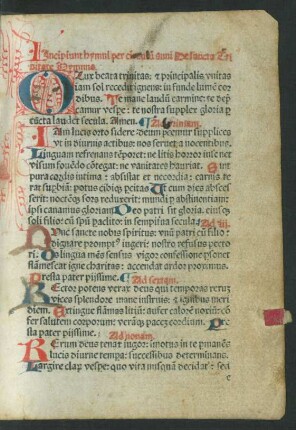 Incipiunt hymni per circulũ anni De sancta Tri
nitate Hymnus
O Lux beata trinitas: et principalis vnitas
iam sol recedit igneus: in funde lumẽ cor
dibus. Te mane laudũ carmine: te dep̃
camur vespe: te nostra supplex gloria p
cũcta laudet secula. Amen. Ad primam.
IAm lucis orto sidere: deum precemur supplices
vt in diurnis actibus: nos seruet a nocentibus.
Linguam refrenans tẽperet: ne litis horror insonet
visum fouẽdo cõtegat: ne vanitates hauriat. Sint
pura cordis intima: absistat et vecordia: carnis te
rat supbiã: potus cibiq; pcitas Ut cum dies absces
serit: noctẽq; sors reduxerit: mundi p abstinentiam:
ipsi canamus gloriam Deo patri sit gloria. eiusq;
soli filio cũ spũ paclito: in sempiterna secula Ad iii.
Nunc sancte nobis spiritus: vnũ patri cũ filio:
dignare prompt' ingeri: nostro refusus pecto
ri. Os lingua mẽs sensus vigor: confessionẽ psonet
flamescat igne charitas: accendat ardor proximos.
Presta pater pissime. Ad sextam.
REctor potens verax deus qui temperas rerum
vices splendore mane instruis: et ignibus meri
diem. Extingue flamas litiũ: aufer calorẽ noxiũ: cõ
fer salutem corporum: verãq; pacẽ cordium. Pre
sta pater pissime. Ad nonam.
REerum deus tenax vigor: imotus in te pmanẽs
lucis diurne tempa: successibus determinans.
Largire clarũ vespe: quo vita nusquã decidat: sed